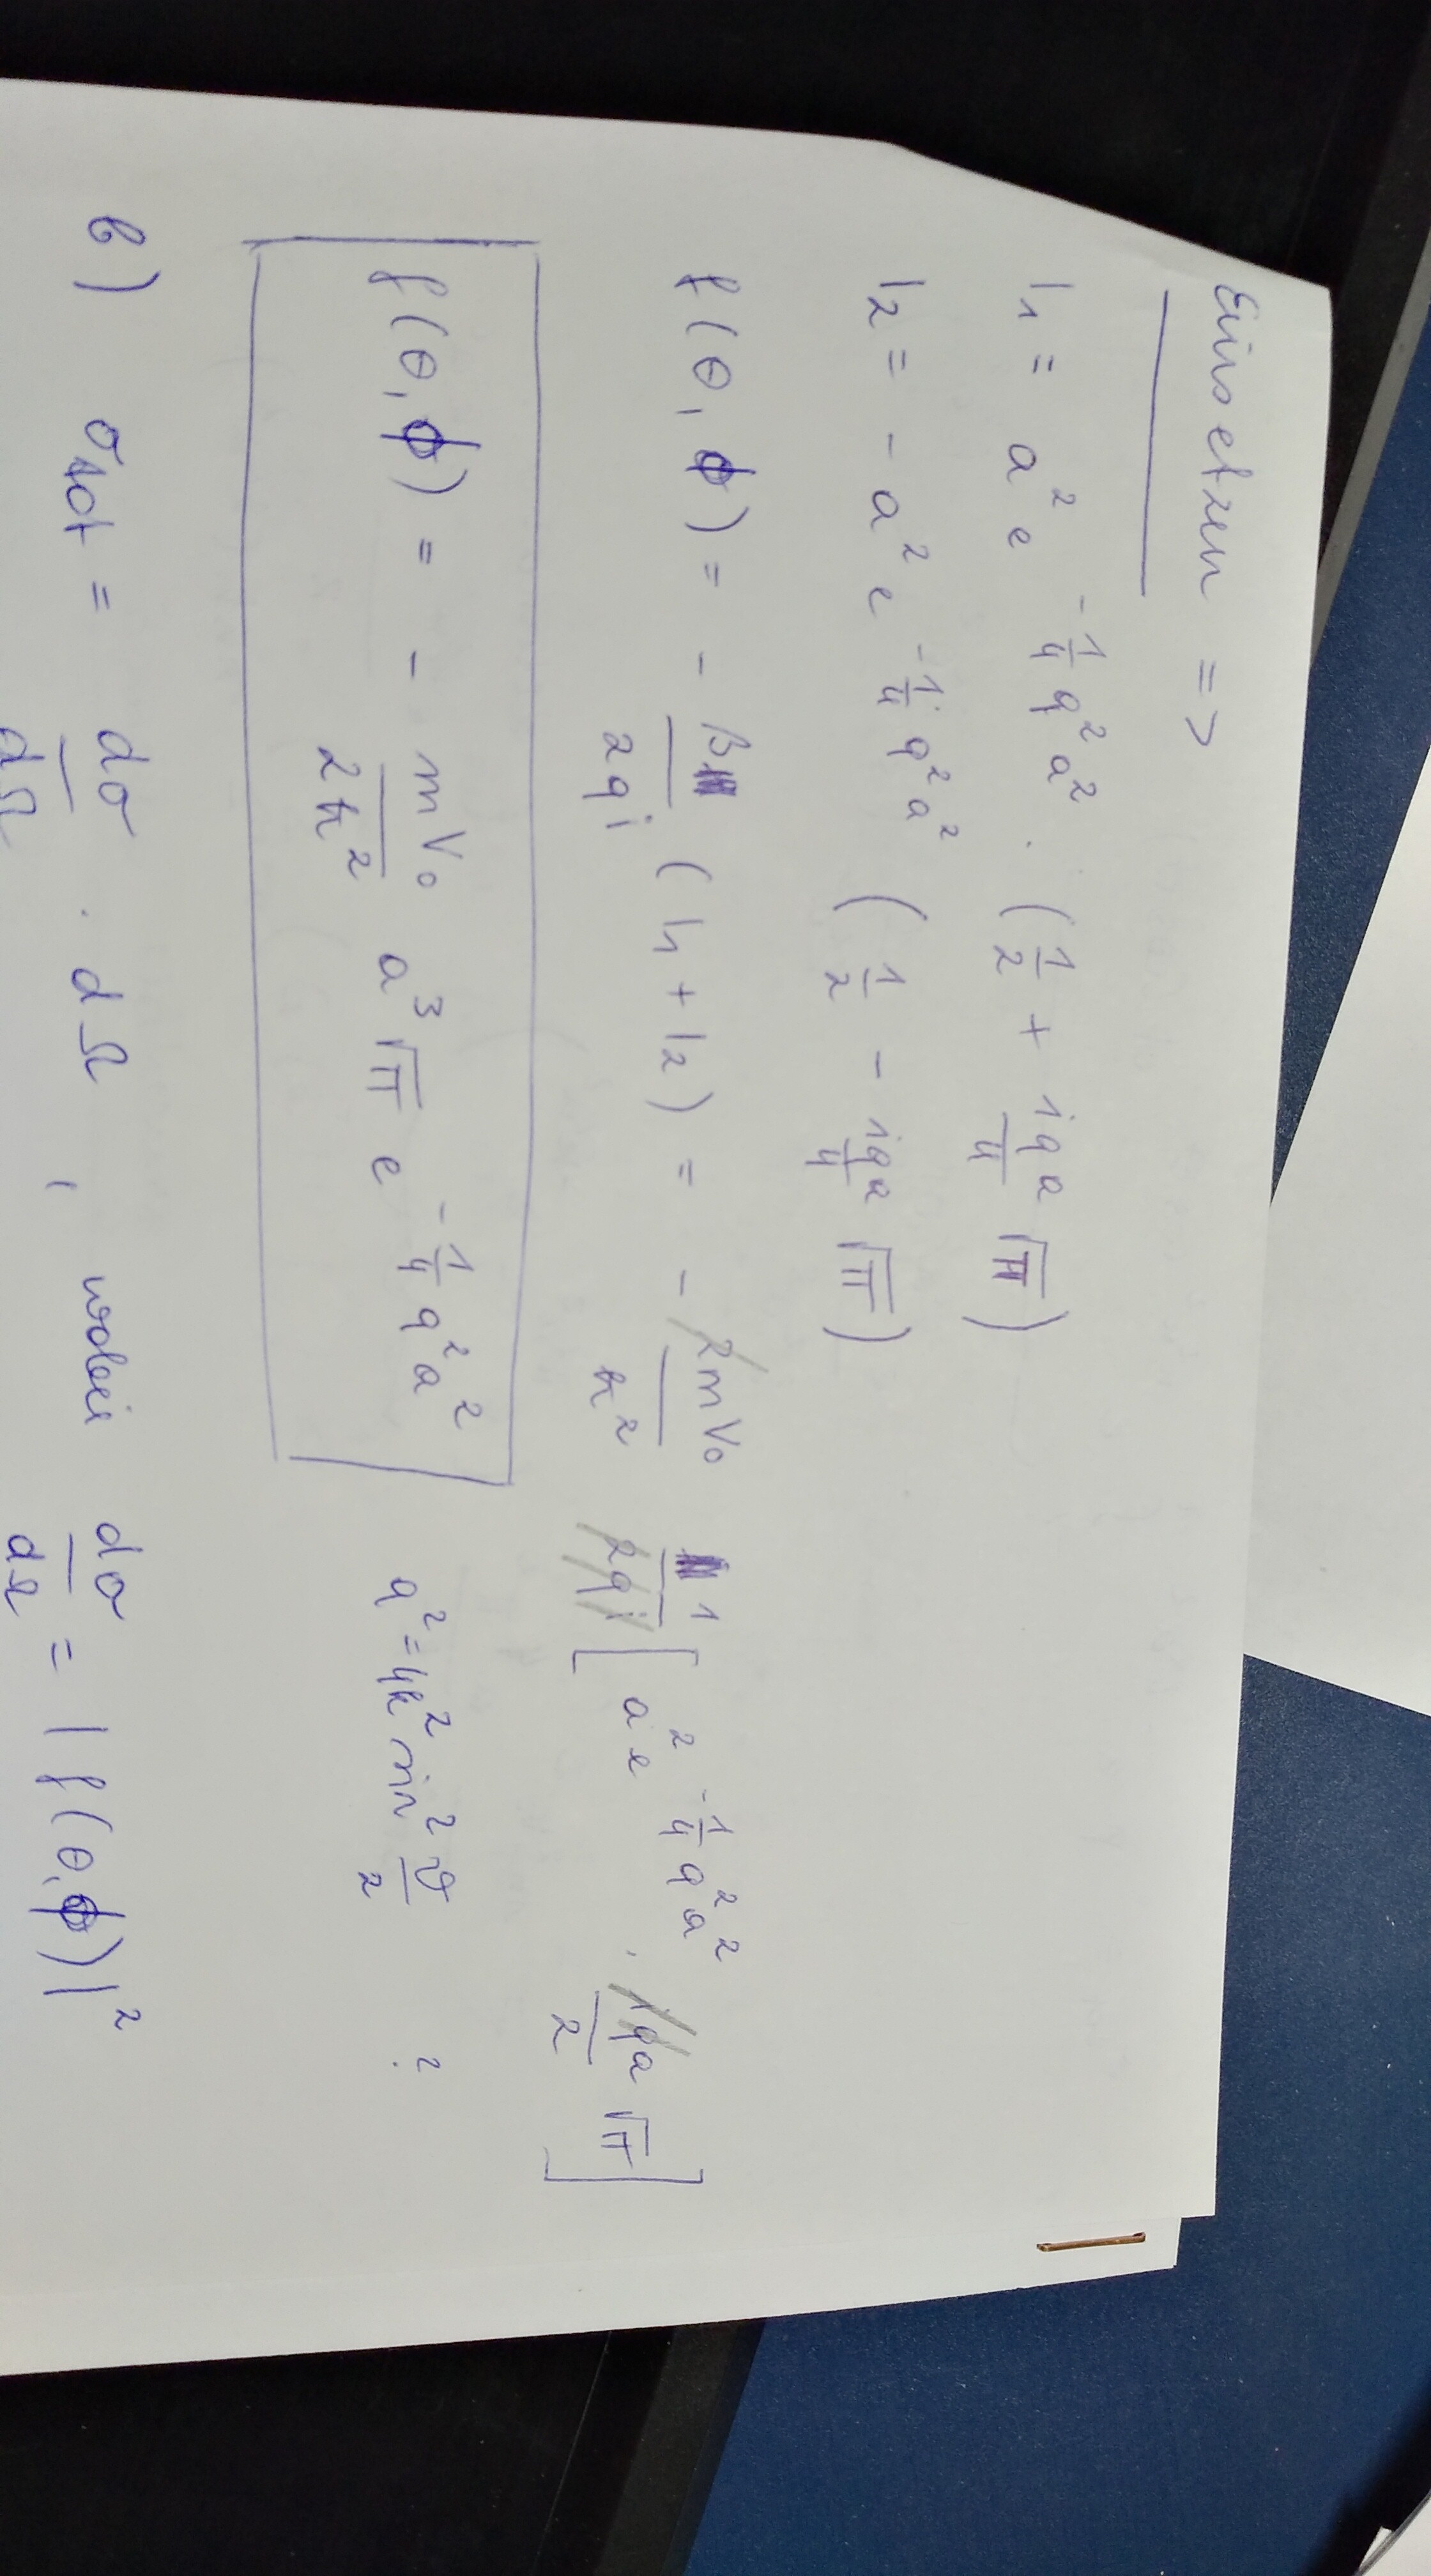 Einsetzen =>
I₁ = a² e^{-1/4 q² a²} · (1/2 + iqa/4 √π)
I₂ = - a² e^{-1/4 q² a²} (1/2 - iqa/4 √π)
f(θ, ϕ) = - β/2qi (I₁ + I₂) = - 2mV₀/ħ² 1/2qi [a² e^{-1/4 q² a²} · iqa/2 √π]
f(θ, ϕ) = - mV₀/2ħ² a³ √π e^{-1/4 q² a²} q² = 4k² sin² ϑ/2 ?
b) σ_tot = dσ/dΩ · dΩ , wobei dσ/dΩ = |f(θ, ϕ)|²